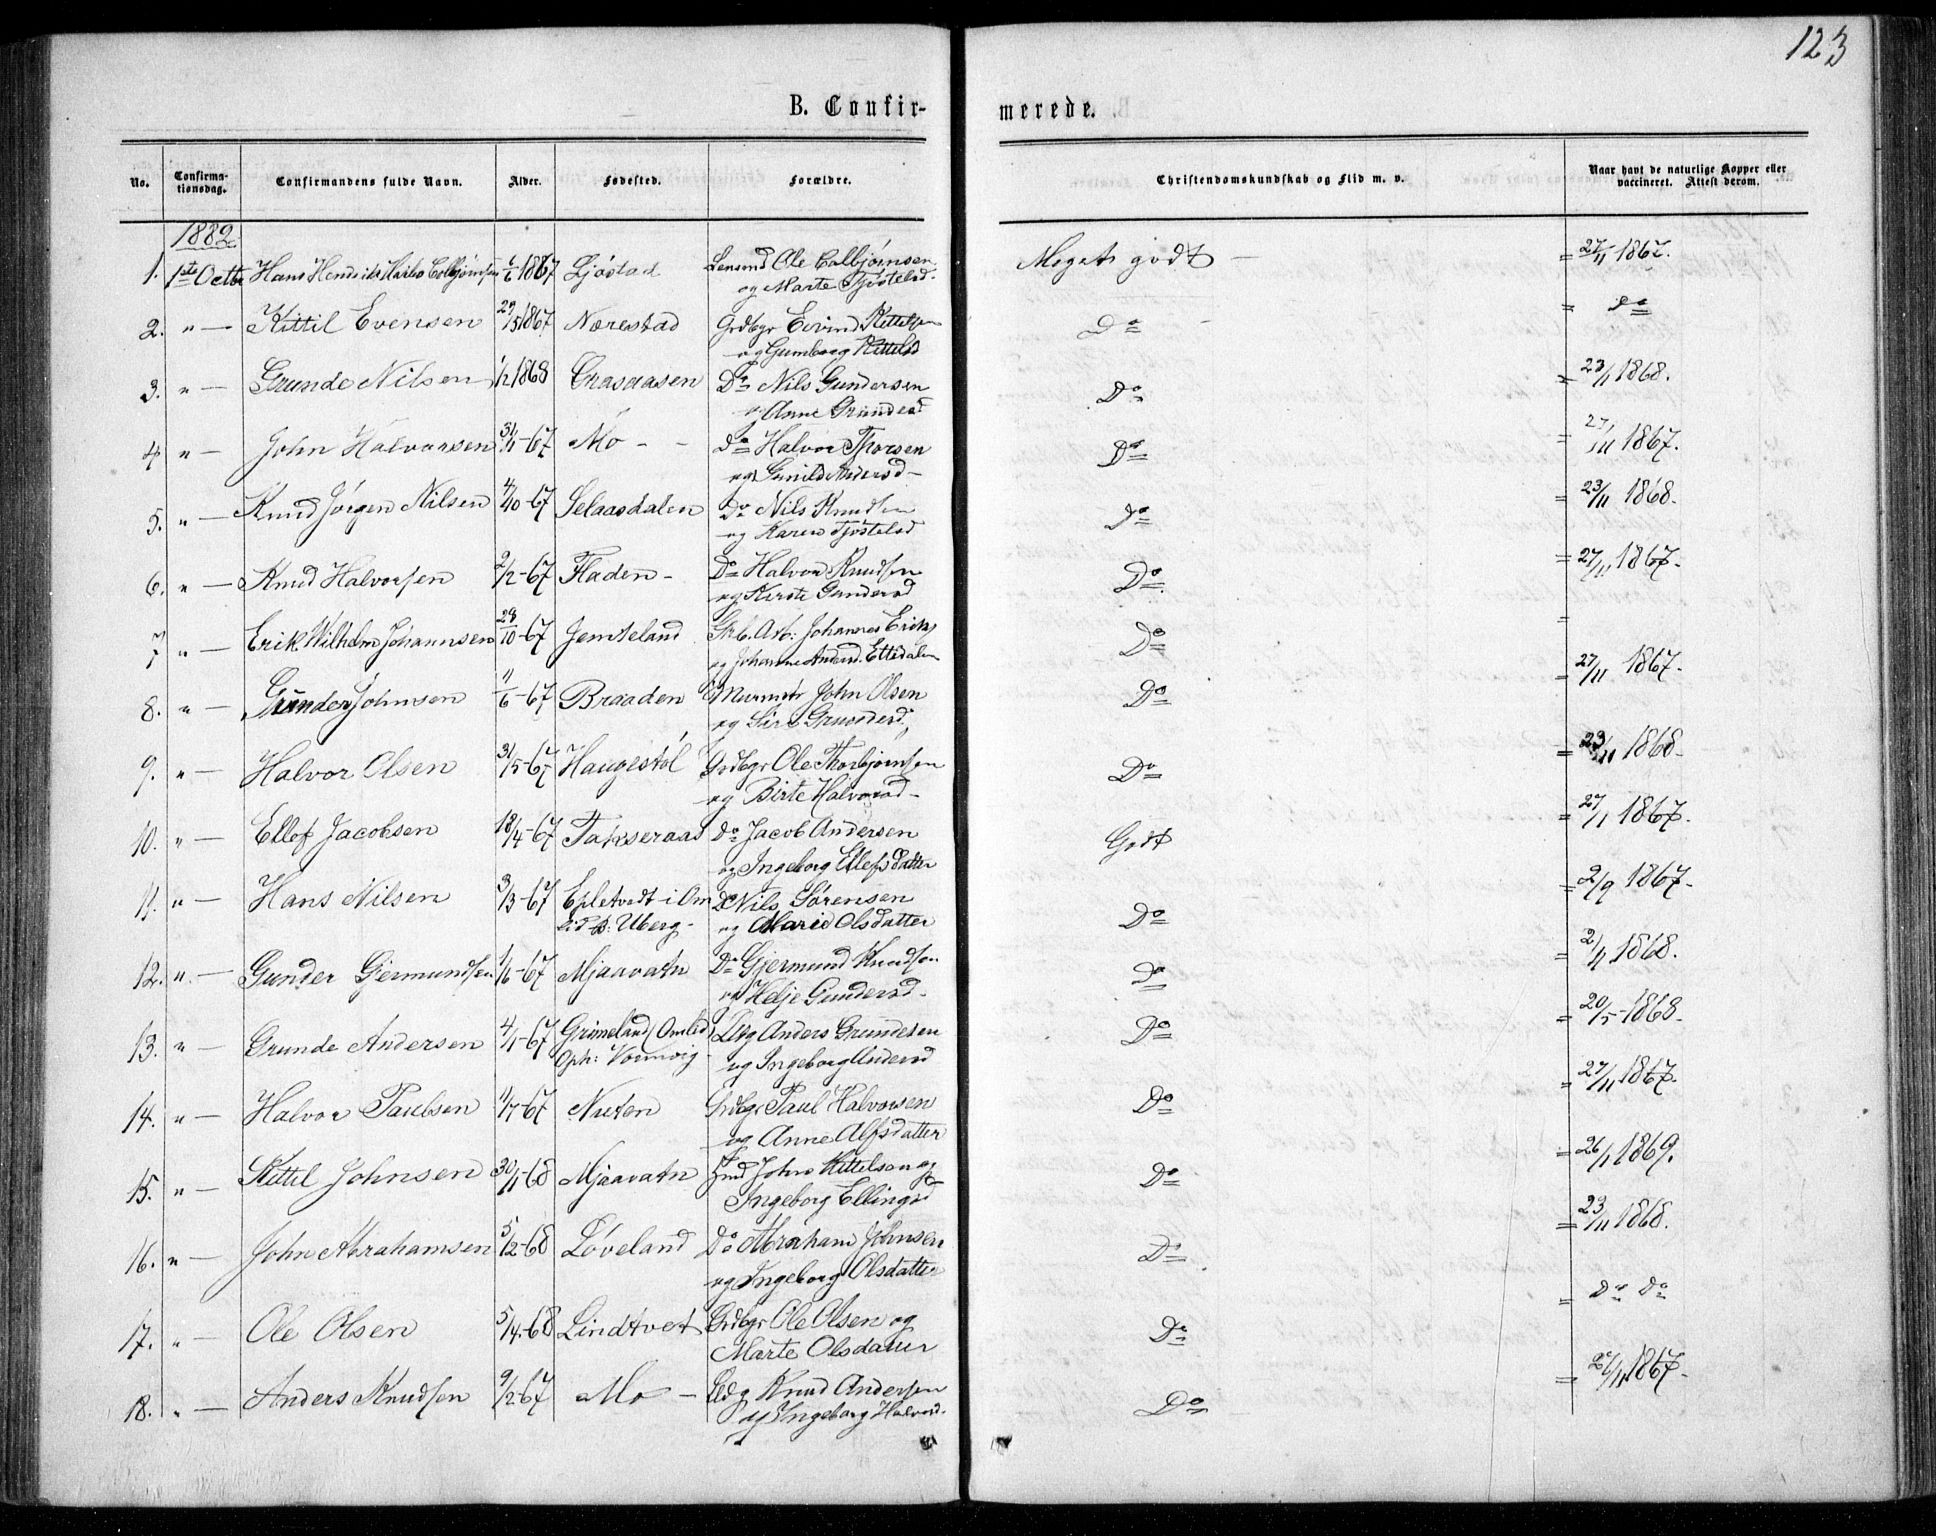 123
B. Confirmerede.
No. Confirmationsdag. Confirmandens fulde Navn. Alder. Fødested. Forældre. Christendomskundskab og Flid m. v. Naar havt de naturlige Kopper eller vaccineret. Attest derom.
1882
1. 1ste Octbr Hans Hendrik 1867 Ljøstad Lensmd Ole Colbjørnsen Meget godt — = 27/11 1867.
og Marte Tjøstelsd.
2. " — Kittil Evensen 29/5 1867 Nærestad Grdbgr Kittelsen Do = do
og Gumborg Kittelsd
3. " — Grunde Nilsen 1/2 1868 Do Nils Gundersen Do = 23/11 1868.
og Anne Grundesd
4 " — John Halvorsen 31/11-67 Mo - - do Halvor Thorsen Do = 27/11 1867.
og Gunild Andersd —
5. " — Knud Jørgen Nilsen 4/10-67 Selaasdalen Do Nils Knudsen Do = 23/11 1868
og Karen Tjøstelsd
6. " — Knud Halvorsen 2/2-67 Fladen - Do Halvor Knudsen Do = 27/11 1867.
og Kirste Gundersd
7 " — Erik Wilhelm Johannsen 28/10-67 Jemteland Arb: Johannes Eriks Do =
og Johanne Andersd. Ettedalen
8. " — Gunder Johnsen 11/6-67 Braaden Murmstr John Olsen Do = 27/11 1867.
og Siri Grundesd.
9. " — Halvor Olsen 31/5-67 Haugestøl Grdbgr Ole Thorbjørnsen Do = 23/11 1868
og Birte Halvorsd —
10. " — Ellef Jacobsen 18/4-67 Takseraas Do Jacob Andersen Godt = 27/11 1867.
og Ingeborg Ellefsdatter
11. " — Hans Nilsen 3/3-67 Epletvedt i Om Do Nils Sørensen Do = 2/9 1867.
lid B: Uberg - og Marie Olsdatter
12. " — Gunder Gjermundsen 1/6-67 Mjaavatn Do Gjermund Knudsen Do = 2/11 1868.
og Helje Gundersd -
13. " — Grunde Andersen 4/1-67 Grimeland (Omlid) Anders Grundesen Do = 20/5 1868.
Oph: og Ingeborg Andersd
14. " — Halvor Paulsen 11/7-67 Nuten Grdbgr Paul Halvorsen Do = 27/11 1867.
og Anne Alfsdatter
15. " — Kittil Johnsen 30/1-68 Mjaavatn John Kittelsen og Do = 26/1 1869.
Ingeborg Ellingsd
16. " — John Abrahamsen 5/12-68 Løveland Do Abraham Johnsen Do = 23/11 1868.
og Ingeborg Olsdatter
17. " — Ole Olsen 5/4-68 Lindtvet Grdbgr Ole Olsen og Do = Do Do
Marte Olsdatter
18. " — Anders Knudsen 9/2-67 Mo — Knud Andersen Do = 27/11 1867.
og Ingeborg Halvorsd.